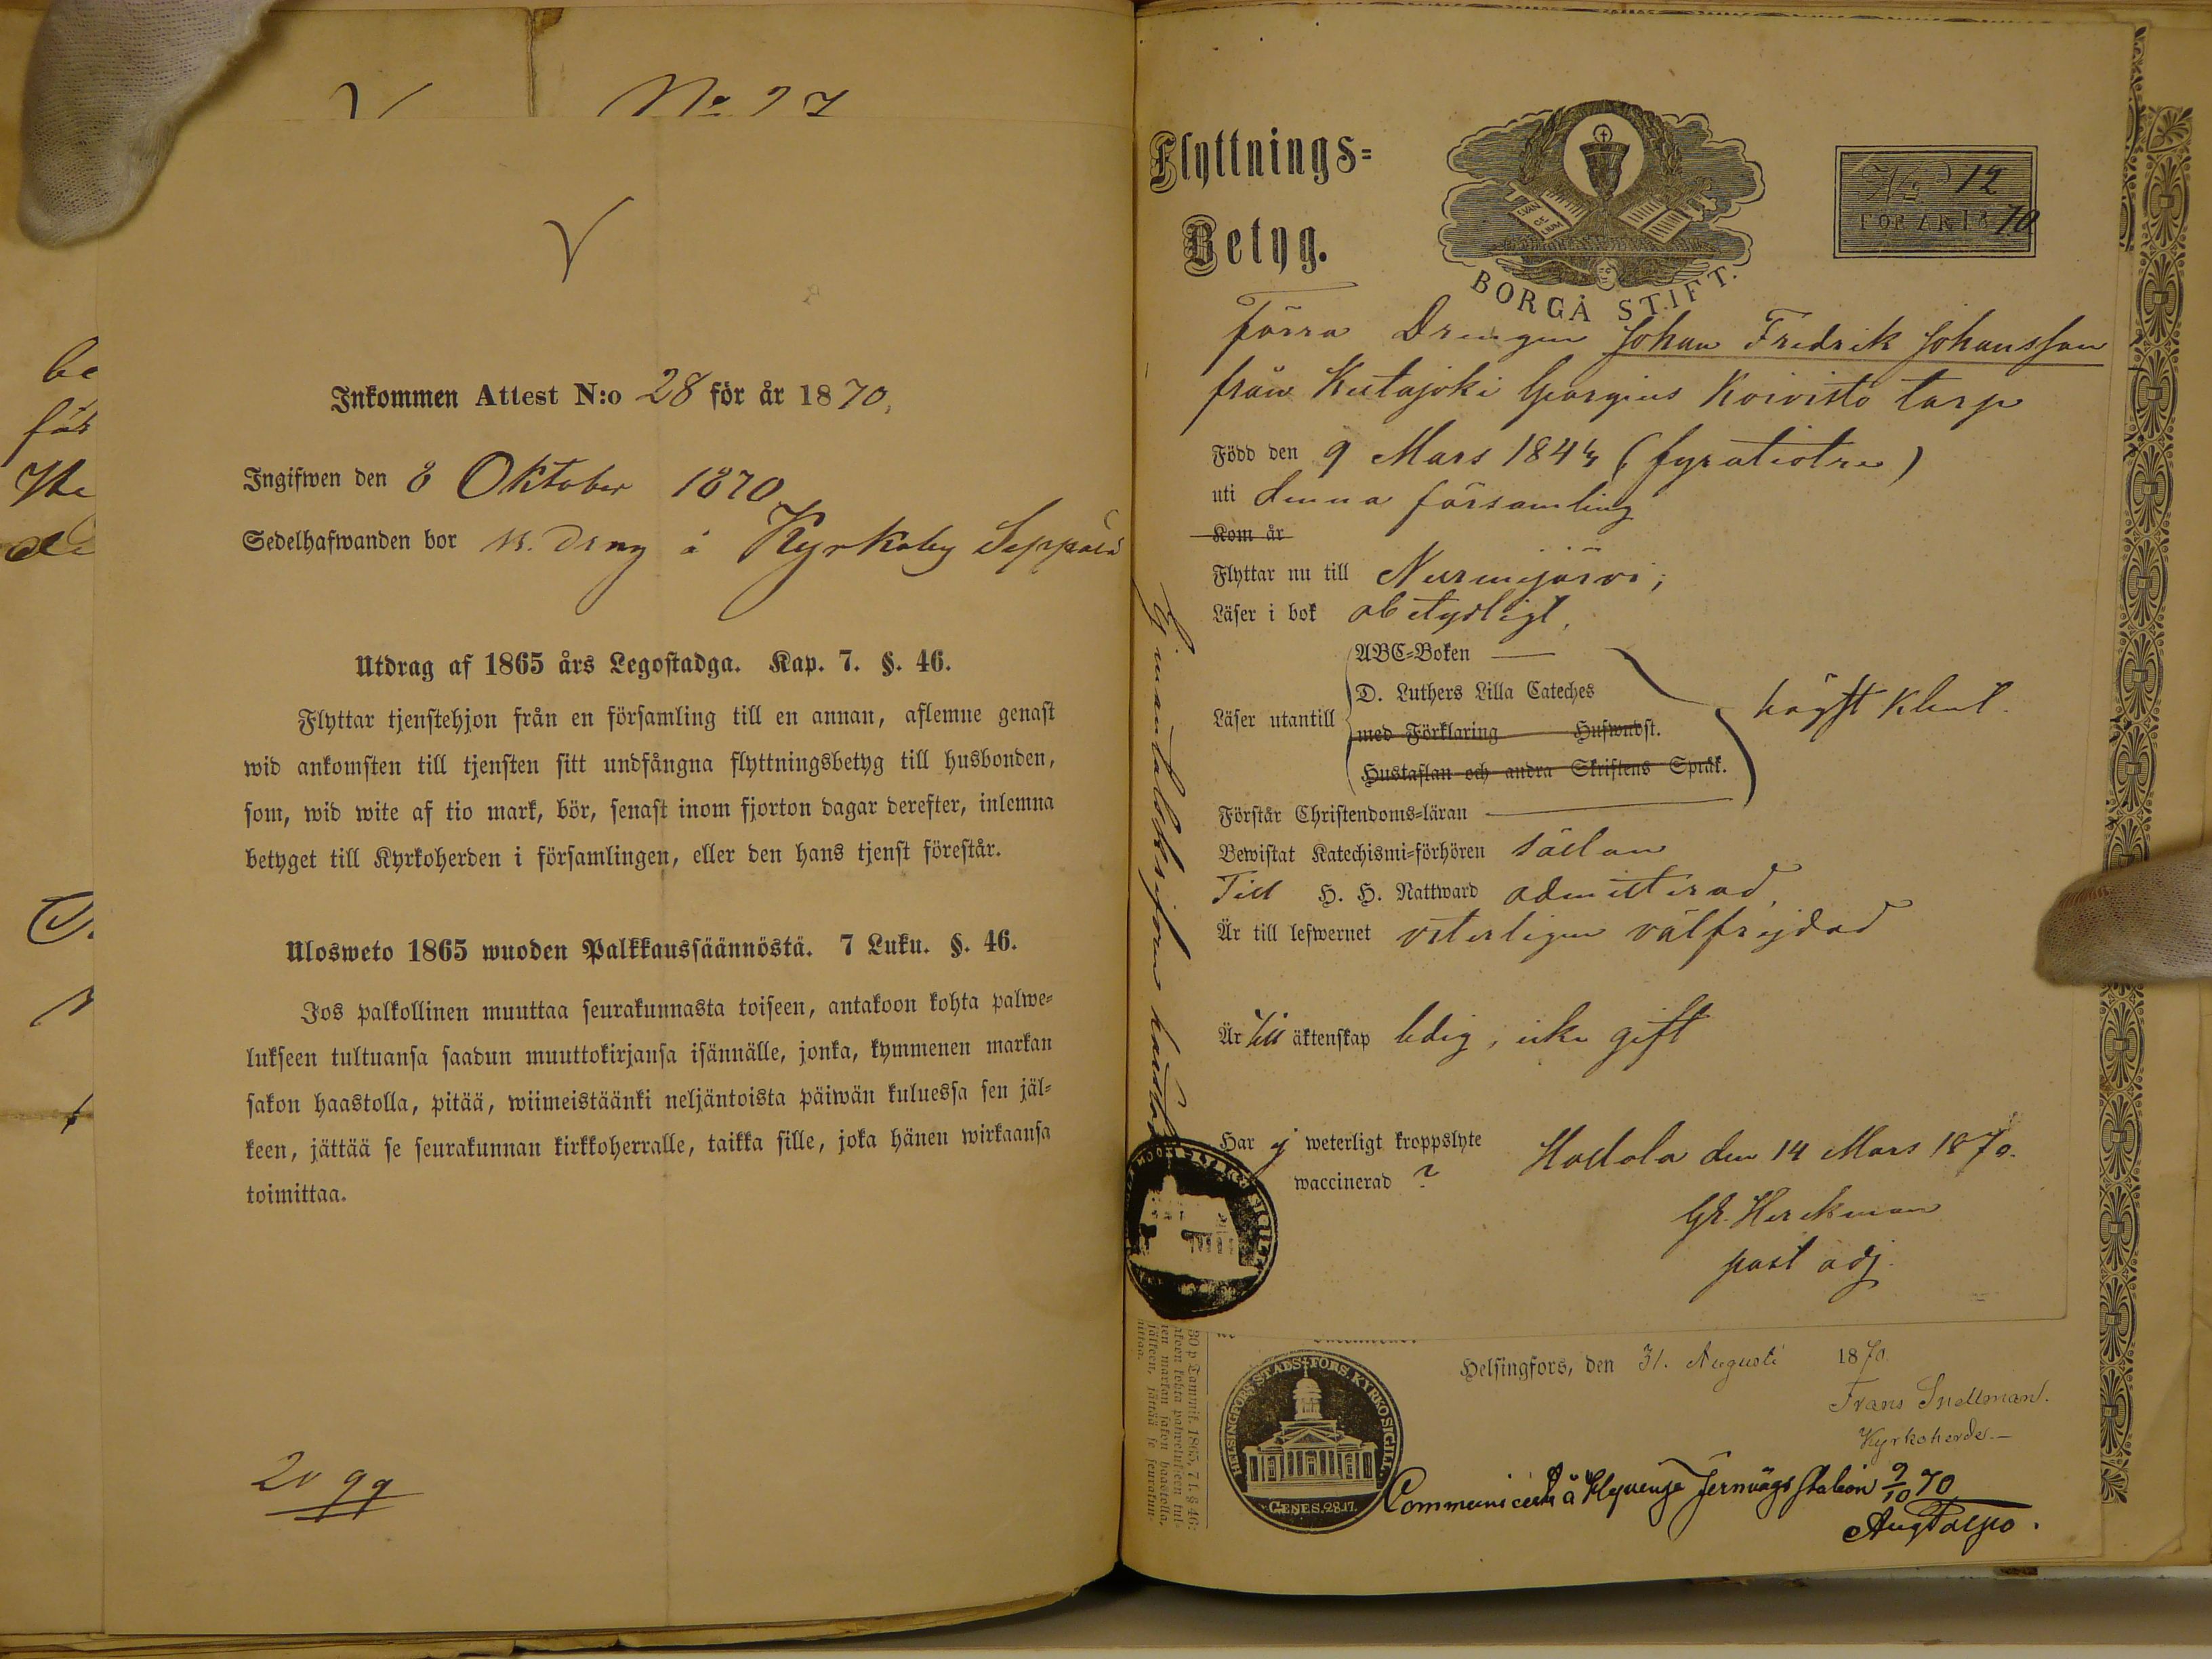 No 27
Inkommen Attest N:o 28 för år 1870.
Ingifwen den 8 Oktober 1870
Sedelhafwanden bor  drng å Kyrkoby Seppälä
Utdrag af 1865 års Legostadga. Kap. 7. §. 46.
Flyttar tjenstehjon från en församling till en annan, aflemne genast
wid ankomsten till tjensten sitt undfångna flyttningsbetyg till husbonden,
som, wid wite af tio mark, bör, senast inom fjorton dagar derefter, inlemna
betyget till Kyrkoherden i församlingen, eller den hans tjenst förestår.
Ulosweto 1865 wuoden Palkkaussäännöstä. 7 Luku. §. 46.
Jos palkollinen muuttaa seurakunnasta toiseen, antakoon kohta palwe-
lukseen tultuansa saadun muuttokirjansa isännälle, jonka, kymmenen markan
sakon haastolla, pitää, wiimeistäänki neljäntoista päiwän kuluessa sen jäl-
keen, jättää se seurakunnan kirkkoherralle, taikka sille, joka hänen wirkaansa
toimittaa.
Flyttnings-
Betyg.
EVAN
GE
LIUM
BORGÅ STIFT.
No 12
FÖR ÅR 1870
Förra Drengen Johan Fredrik Johansson
från Kutajoki Koivisto torp
Född den 9 Mars 1843 (fyratiotre)
uti denna församling
Kom år
Flyttar nu till Nurmijärvi;
Läser i bok obetydligt,
ABC-Boken
D. Luthers Lilla Cateches
Läser utantill
högst klent.
med Förklaring
Hustaflan och andra Skriftens Språk.
Förstår Christendoms-läran
Bewistat Katechismi-förhören sällan
Till H. H. Nattward admitterad,
Är till lefwernet veterligen välfrejdad
Är till äktenskap ledig, icke gift
Har ej weterligt kroppslyte
waccinerad ?
Hollola den 14 Mars 1870.
past adj.
Helsingfors, den 31. Augusti 1870
Frans Snellman.
Kyrkoherde.
HELSINGFORS STADS FÖRS. KYRKO SIGILL.
GENES. 28.17.
Communicerat å Hyvinge Jernvägs station 9/10 70